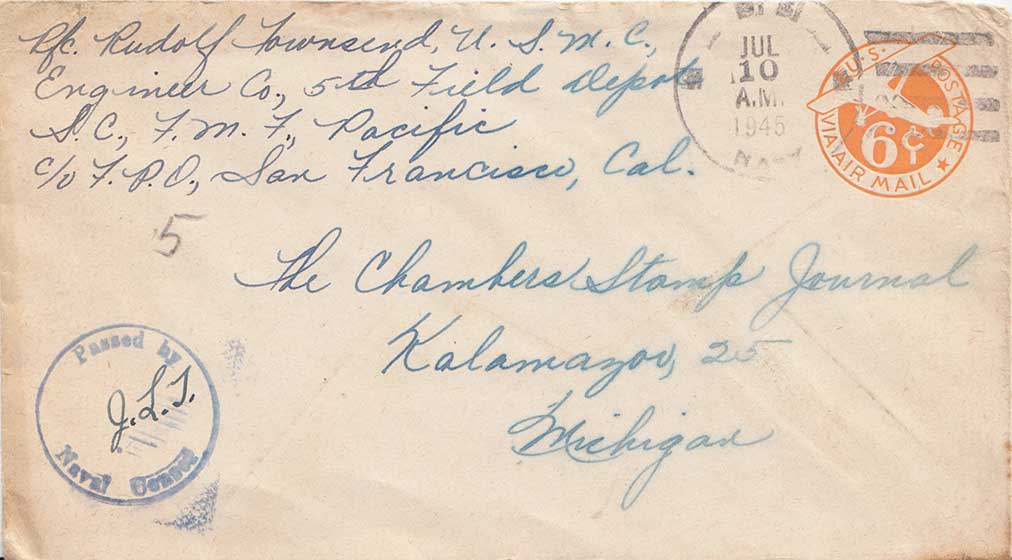 Pfc. Rudolf Townsend, U. S. M. C.,
Engineer Co., 5th Field Depot
S. C., F. M. F., Pacific
c/o F. P. O., San Francisco, Cal.
JUL
10
A.M.
1945
NAVY
U.S. POSTAGE
6¢
VIA AIR MAIL
5
The Chambers Stamp Journal
Kalamazoo, 25
Michigan
Passed by
J.L.T.
Naval Censor